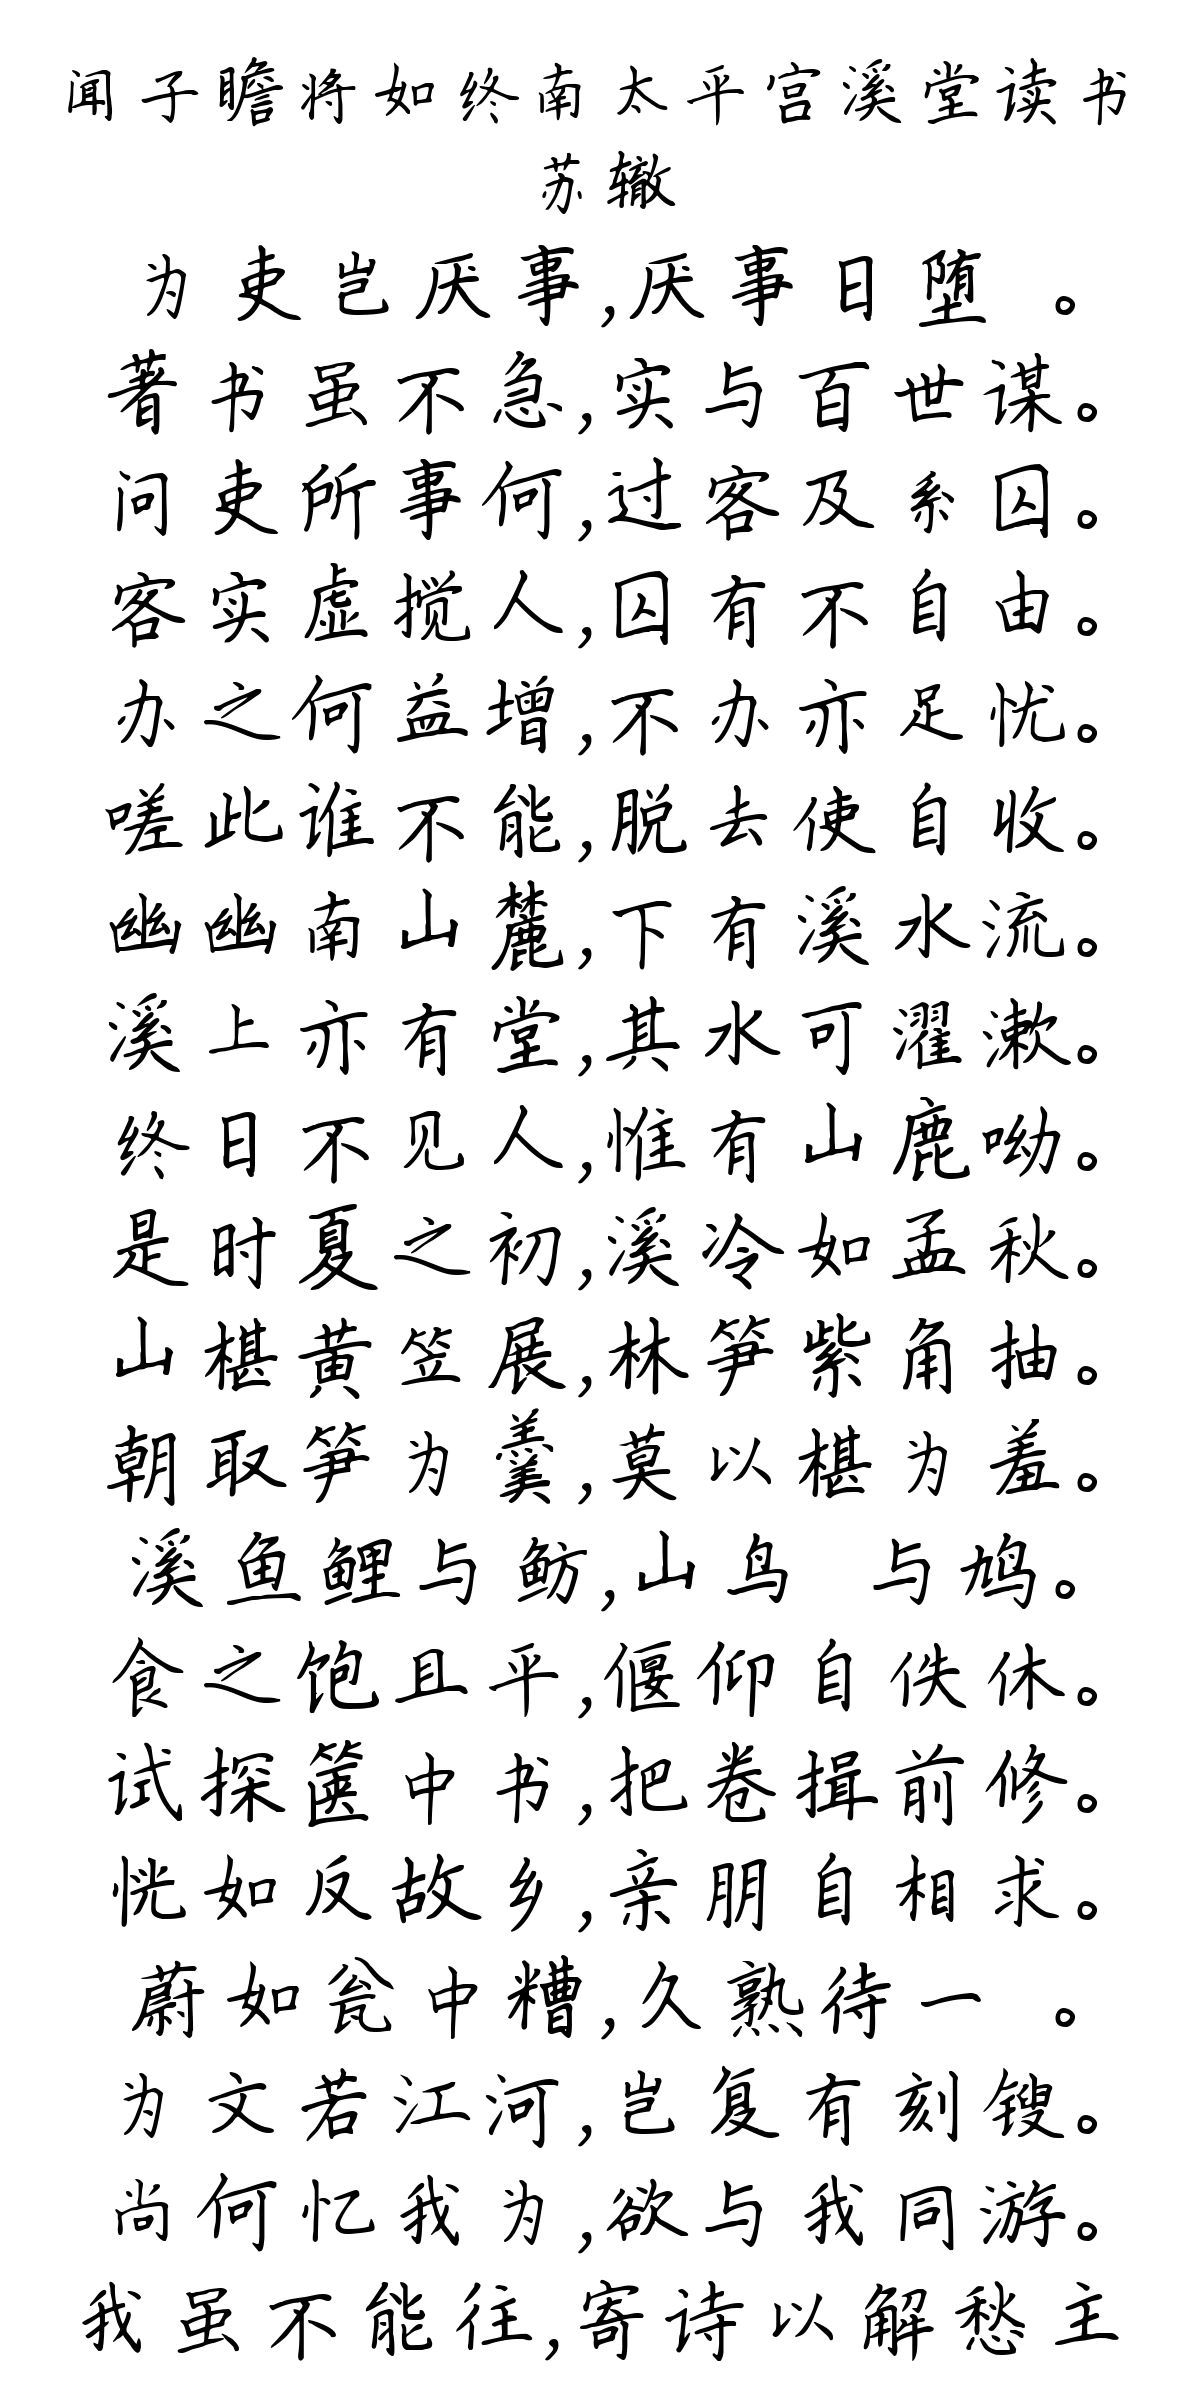 闻子瞻将如终南太平宫溪堂读书
苏辙
为吏岂厌事,厌事日堕 。
著书虽不急,实与百世谋。
问吏所事何,过客及系囚。
客实虚搅人,囚有不自由。
办之何益增,不办亦足忧。
嗟此谁不能,脱去使自收。
幽幽南山麓,下有溪水流。
溪上亦有堂,其水可濯漱。
终日不见人,惟有山鹿呦。
是时夏之初,溪冷如孟秋。
山椹黄笠展,林笋紫角抽。
朝取笋为羹,莫以椹为羞。
溪鱼鲤与鲂,山鸟 与鸠。
食之饱且平,偃仰自佚休。
试探箧中书,把卷揖前修。
恍如反故乡,亲朋自相求。
蔚如瓮中糟,久熟待一 。
为文若江河,岂复有刻锼。
尚何忆我为,欲与我同游。
我虽不能往,寄诗以解愁主